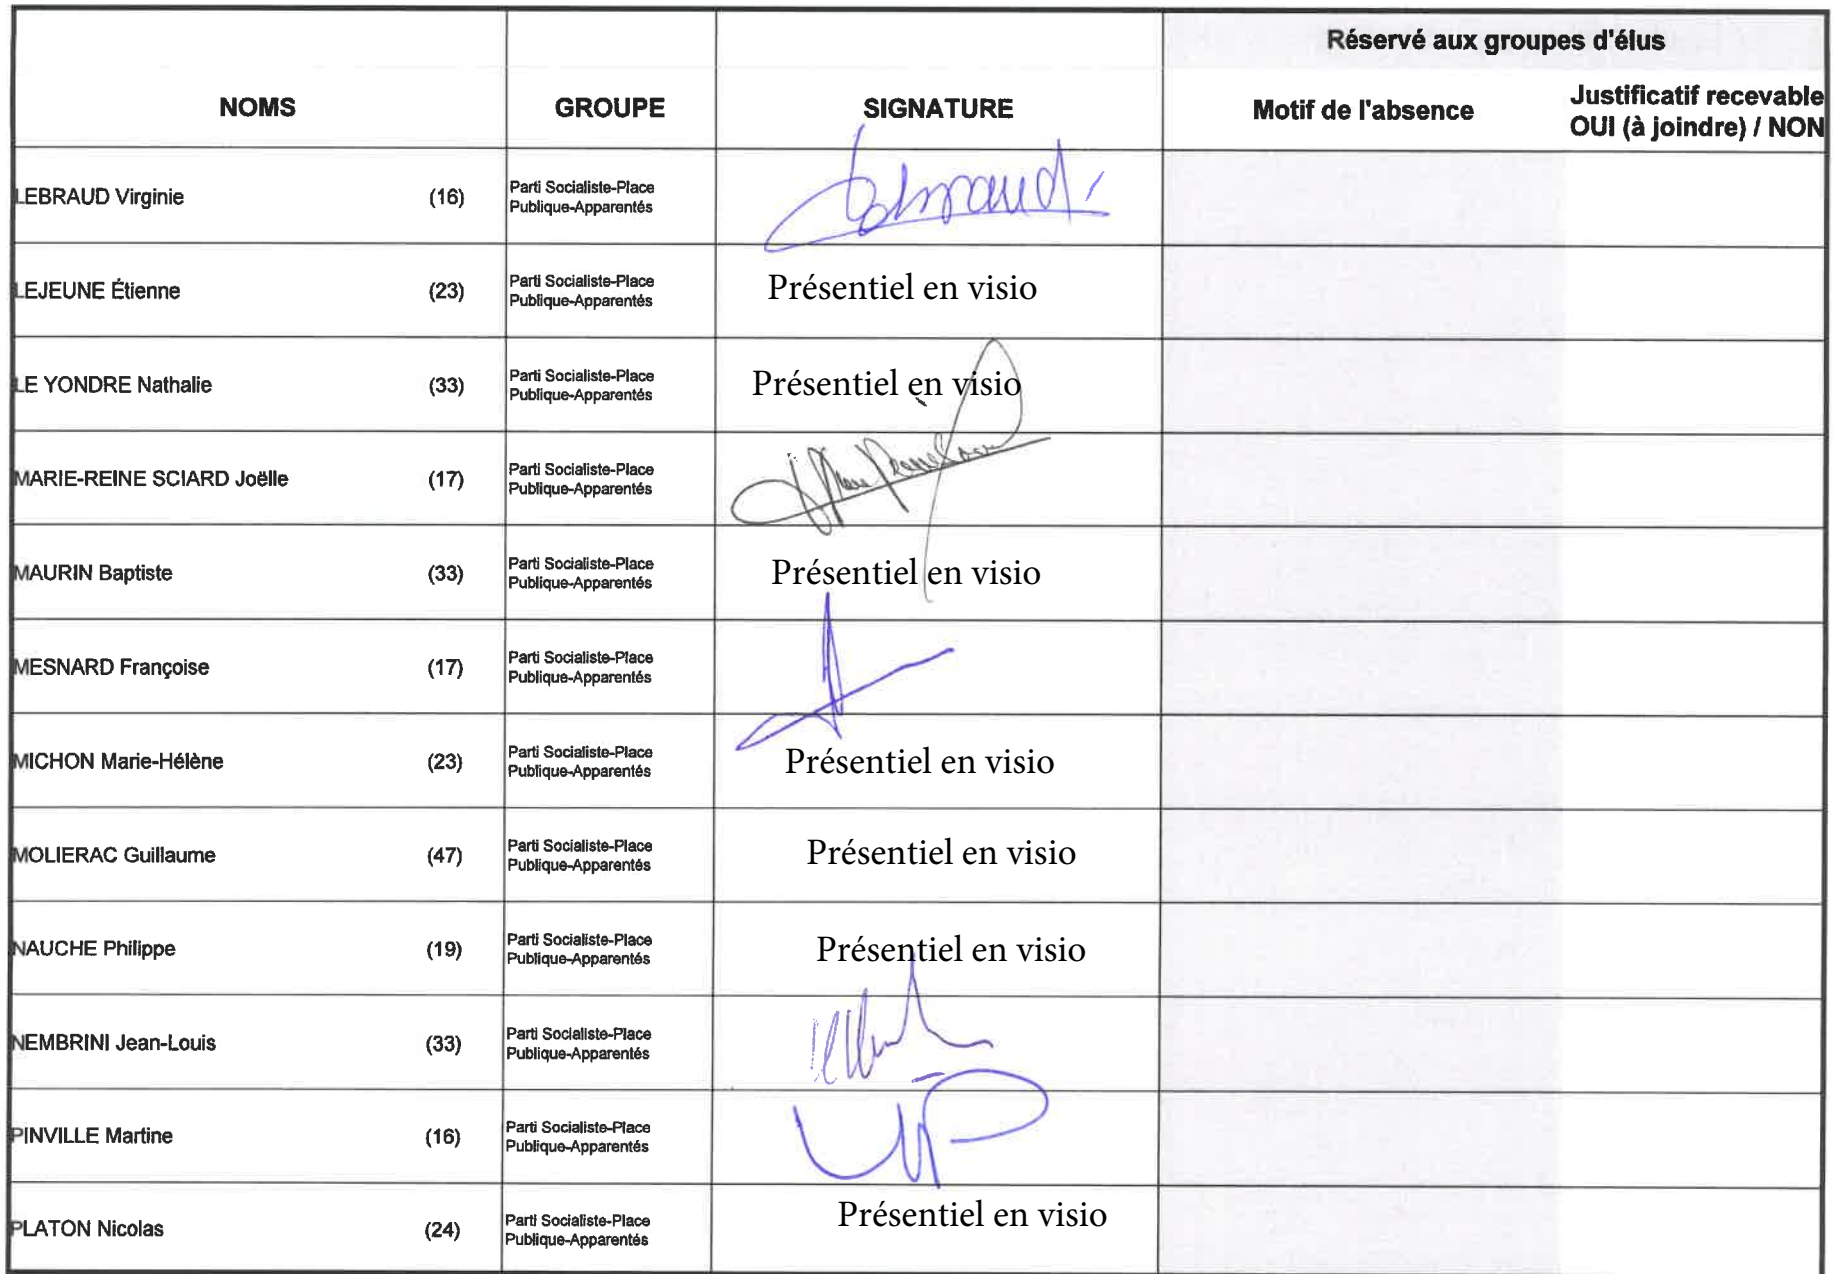 Réservé aux groupes d'élus
NOMS GROUPE SIGNATURE Motif de l'absence Justificatif recevable
OUI (à joindre) / NON
LEBRAUD Virginie (16) Parti Socialiste-Place
Publique-Apparentés
LEJEUNE Étienne (23) Parti Socialiste-Place
Publique-Apparentés
Présentiel en visio
LE YONDRE Nathalie (33) Parti Socialiste-Place
Publique-Apparentés
Présentiel en visio
MARIE-REINE SCIARD Joëlle (17) Parti Socialiste-Place
Publique-Apparentés
MAURIN Baptiste (33) Parti Socialiste-Place
Publique-Apparentés
Présentiel en visio
MESNARD Françoise (17) Parti Socialiste-Place
Publique-Apparentés
MICHON Marie-Hélène (23) Parti Socialiste-Place
Publique-Apparentés
Présentiel en visio
MOLIERAC Guillaume (47) Parti Socialiste-Place
Publique-Apparentés
Présentiel en visio
NAUCHE Philippe (19) Parti Socialiste-Place
Publique-Apparentés
Présentiel en visio
NEMBRINI Jean-Louis (33) Parti Socialiste-Place
Publique-Apparentés
PINVILLE Martine (16) Parti Socialiste-Place
Publique-Apparentés
PLATON Nicolas (24) Parti Socialiste-Place
Publique-Apparentés
Présentiel en visio